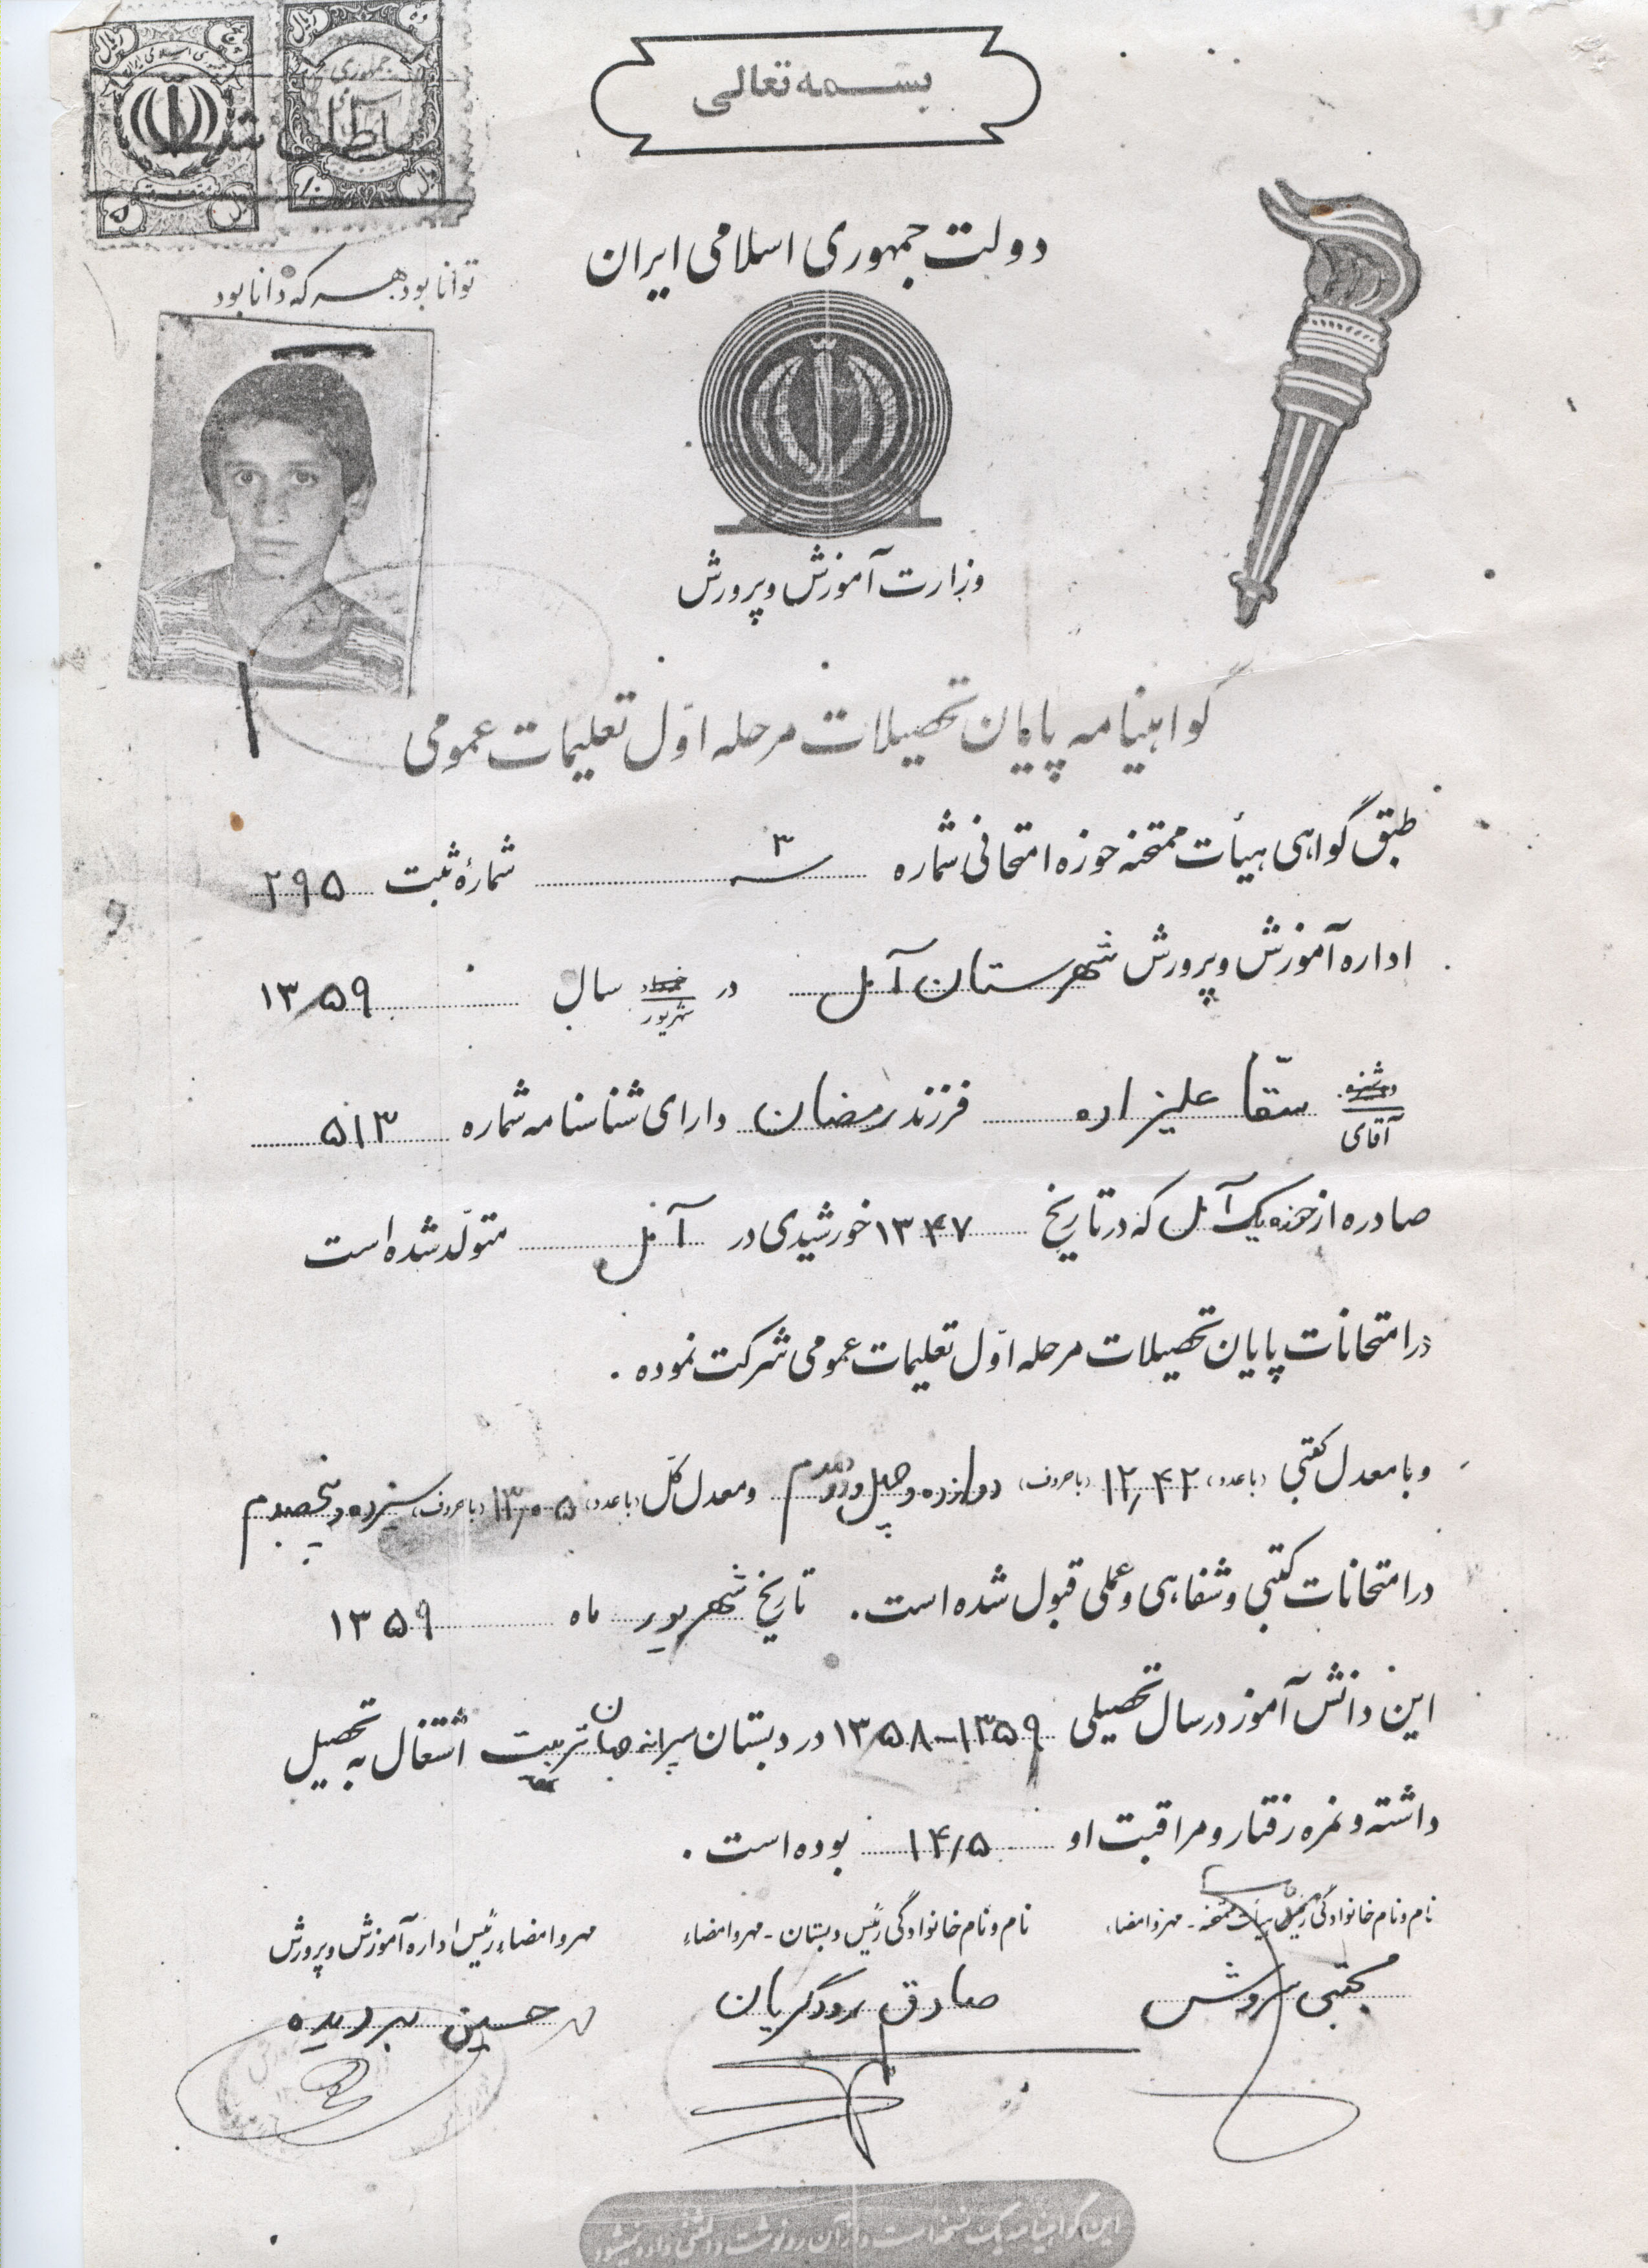 بسمه تعالی
دولت جمهوری اسلامی ایران
توانا بود هر که دانا بود
وزارت آموزش و پرورش
گواهینامه پایان تحصیلات مرحله اوّل تعلیمات عمومی
طبق گواهی هیأت ممتحنه حوزه امتحانی شماره ۳ شمارهٔ ثبت ۲۹۵
اداره آموزش و پرورش شهرستان آمل در خرداد شهریور سال ۱۳۵۹
دوشیزه آقای سقّا علیزاده فرزند رمضان دارای شناسنامه شماره ۵۱۳
صادره از حوزه یک آمل که در تاریخ ۱۳۴۷ خورشیدی در آمل متولّد شده است
در امتحانات پایان تحصیلات مرحله اوّل تعلیمات عمومی شرکت نموده .
و با معدل کتبی (با عدد) ۱۲٫۴۲ (با حروف) دوازده و چهل و دو صدم و معدل کلّ (با عدد) ۱۳٫۰۵ (با حروف) سیزده و پنج صدم
در امتحانات کتبی و شفاهی و عملی قبول شده است . تاریخ شهریور ماه ۱۳۵۹
این دانش آموز در سال تحصیلی ۱۳۵۹-۱۳۵۸ در دبستان پسرانه جهان تربیت اشتغال به تحصیل
داشته و نمره رفتار و مراقبت او ۱۴/۵ بوده است .
نام و نام خانوادگی رئیس هیأت ممتحنه - مهر و امضاء
نام و نام خانوادگی رئیس دبستان - مهر و امضاء
مهر و امضاء رئیس اداره آموزش و پرورش
مجتبی سروش
صادق رودگریان
حسین
این گواهینامه یک نسخه است و از آن رونوشت و المثنی داده نمیشود